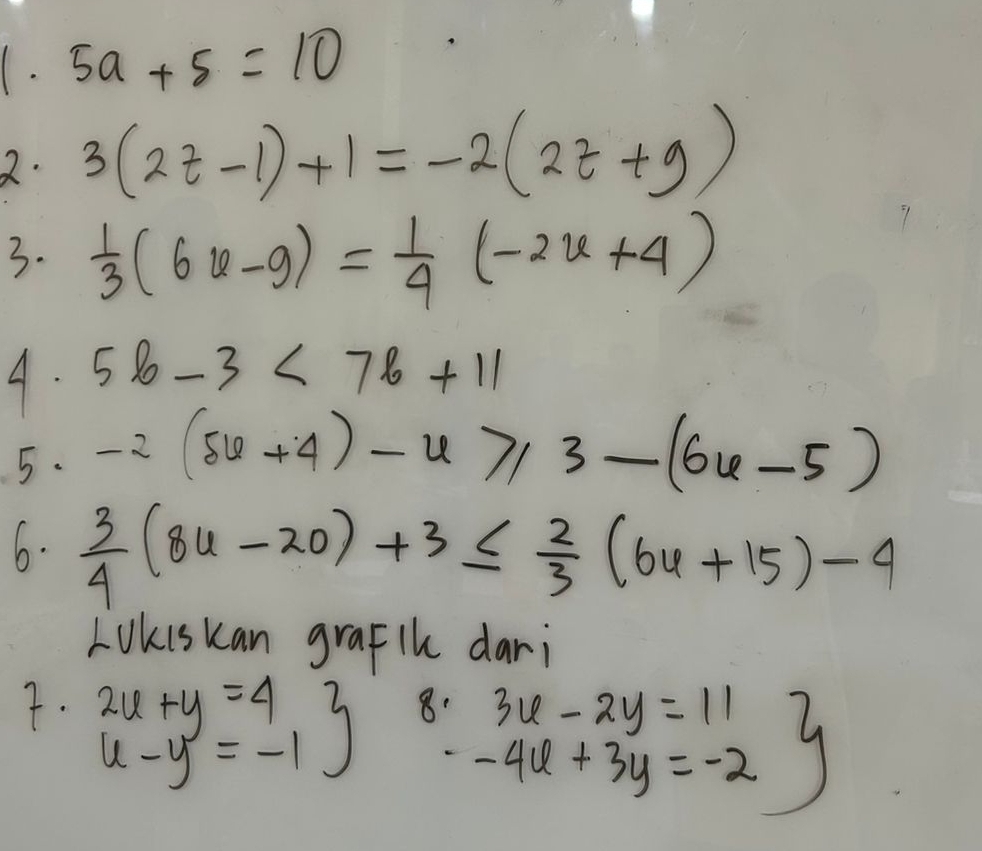 1. 5a + 5 = 10
2. 3(2z - 1) + 1 = -2(2z + 9)
3. 1/3 (6x - 9) = 1/4 (-2x + 4)
4. 5b - 3 < 7b + 11
5. -2 (5x + 4) - x ≥ 3 - (6x - 5)
6. 3/4 (8x - 20) + 3 ≤ 2/3 (6x + 15) - 4
Lukiskan grafik dari
7. 2x + y = 4 } 8. 3x - 2y = 11 }
x - y = -1 -4x + 3y = -2